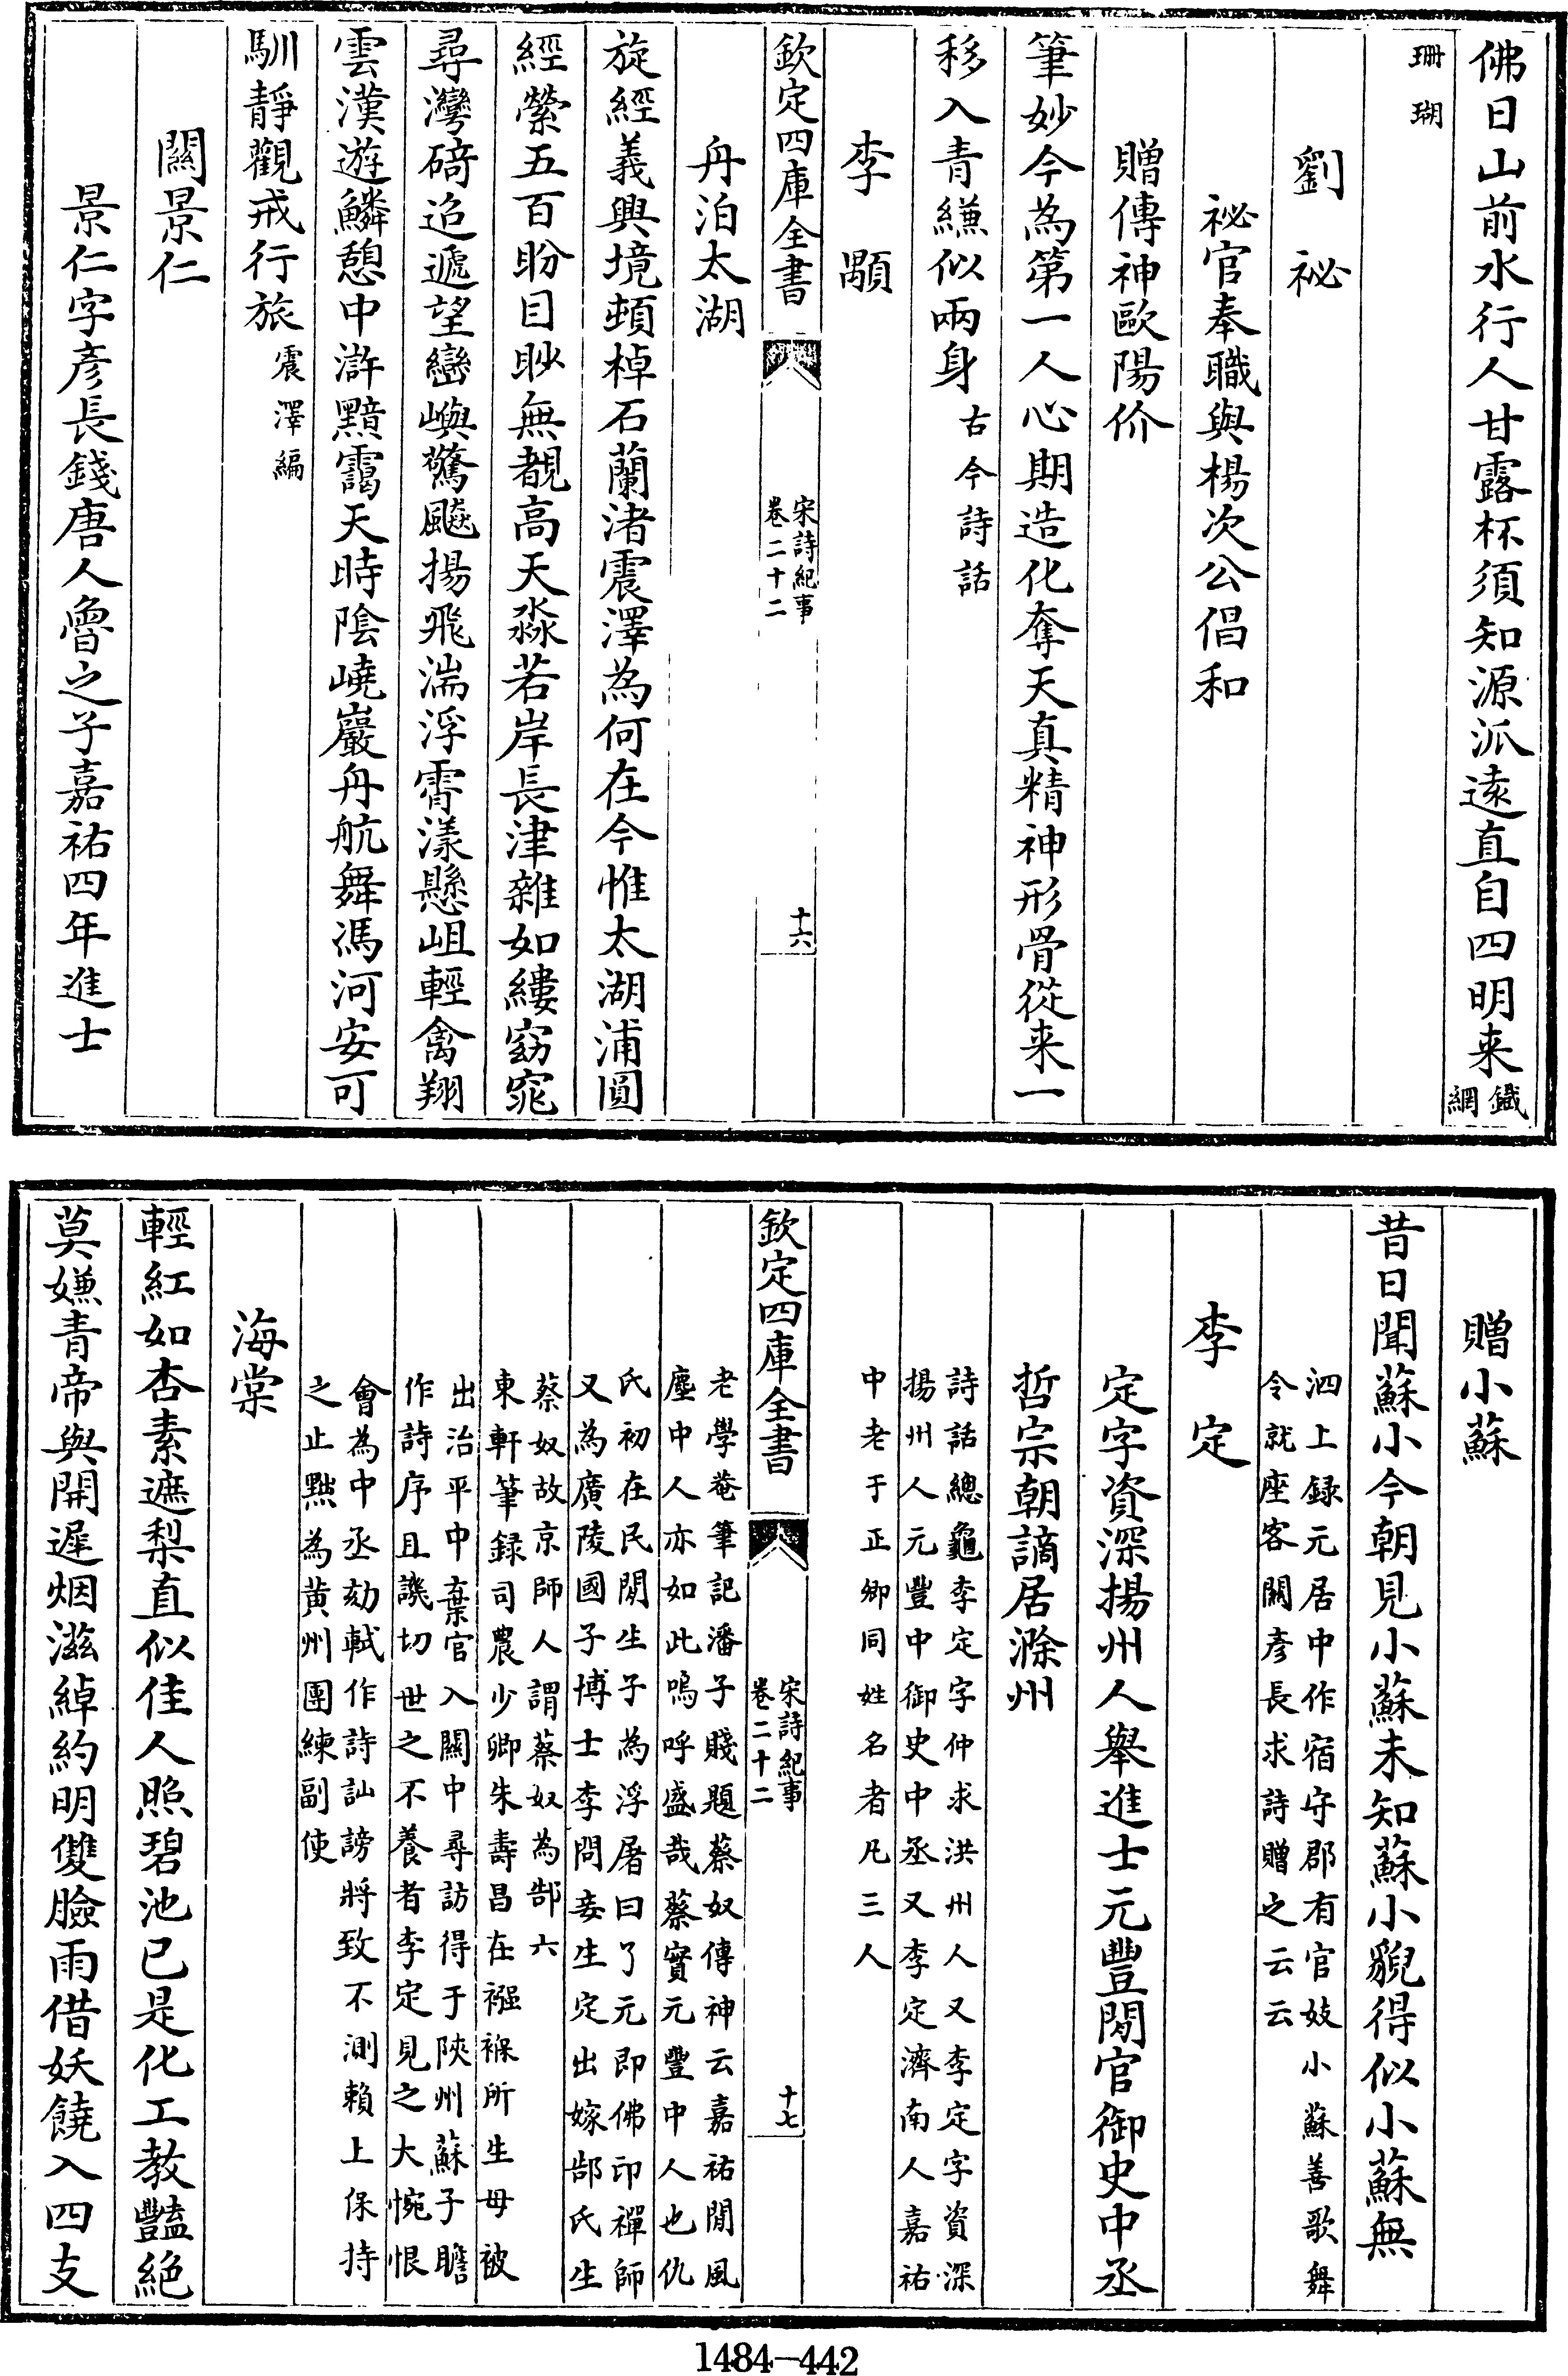 佛日山前水行人甘露杯須知源派逺直自四明来鐵網
珊瑚
劉祕
祕官奉職與楊次公倡和
贈傳神歐陽价
筆妙今為第一人心期造化奪天真精神形骨從来一
移入青縑似兩身古今詩話
李顒
欽定四庫全書
宋詩紀事
卷二十二
十六
舟泊太湖
旋經義興境頓棹石蘭渚震澤為何在今惟太湖浦圓
經縈五百盼目眇無覩高天淼若岸長津雜如縷窈窕
尋灣碕迢遞望巒嶼驚飈揚飛湍浮霄漾懸岨輕禽翔
雲漢遊鱗憩中滸黯靄天時陰嶢巖舟航舞馮河安可
馴靜觀戒行旅震澤編
關景仁
景仁字彥長錢唐人魯之子嘉祐四年進士
贈小蘇
昔日聞蘇小今朝見小蘇未知蘇小貎得似小蘇無
泗上録元居中作宿守郡有官妓小蘇善歌舞
令就座客關彥長求詩贈之云云
李定
定字資深揚州人舉進士元豐閒官御史中丞
哲宗朝謫居滁州
詩話總龜李定字仲求洪州人又李定字資深
揚州人元豐中御史中丞又李定濟南人嘉祐
中老于正卿同姓名者凡三人
欽定四庫全書
宋詩紀事
卷二十二
十七
老學菴筆記潘子賤題蔡奴傳神云嘉祐閒風
塵中人亦如此嗚呼盛哉蔡實元豐中人也仇
氏初在民閒生子為浮屠曰了元即佛印禪師
又為廣陵國子博士李問妾生定出嫁郜氏生
蔡奴故京師人謂蔡奴為郜六
東軒筆録司農少卿朱壽昌在襁褓所生母被
出治平中棄官入關中尋訪得于陝州蘇子瞻
作詩序且譏切世之不養者李定見之大惋恨
會為中丞劾軾作詩訕謗將致不測賴上保持
之止㸃為黄州團練副使
海棠
輕紅如杏素遮梨直似佳人照碧池已是化工教豔絶
莫嫌青帝與開遲烟滋綽約明雙臉雨借妖饒入四支
1484-442